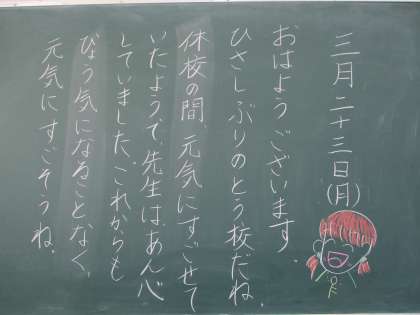 三月二十三日(月)
おはようございます。
ひさしぶりのとう校だね。
休校の間、元気にすごせて
いたようで、先生は、あん心
していました。これからも
びょう気になることなく、
元気にすごそうね。